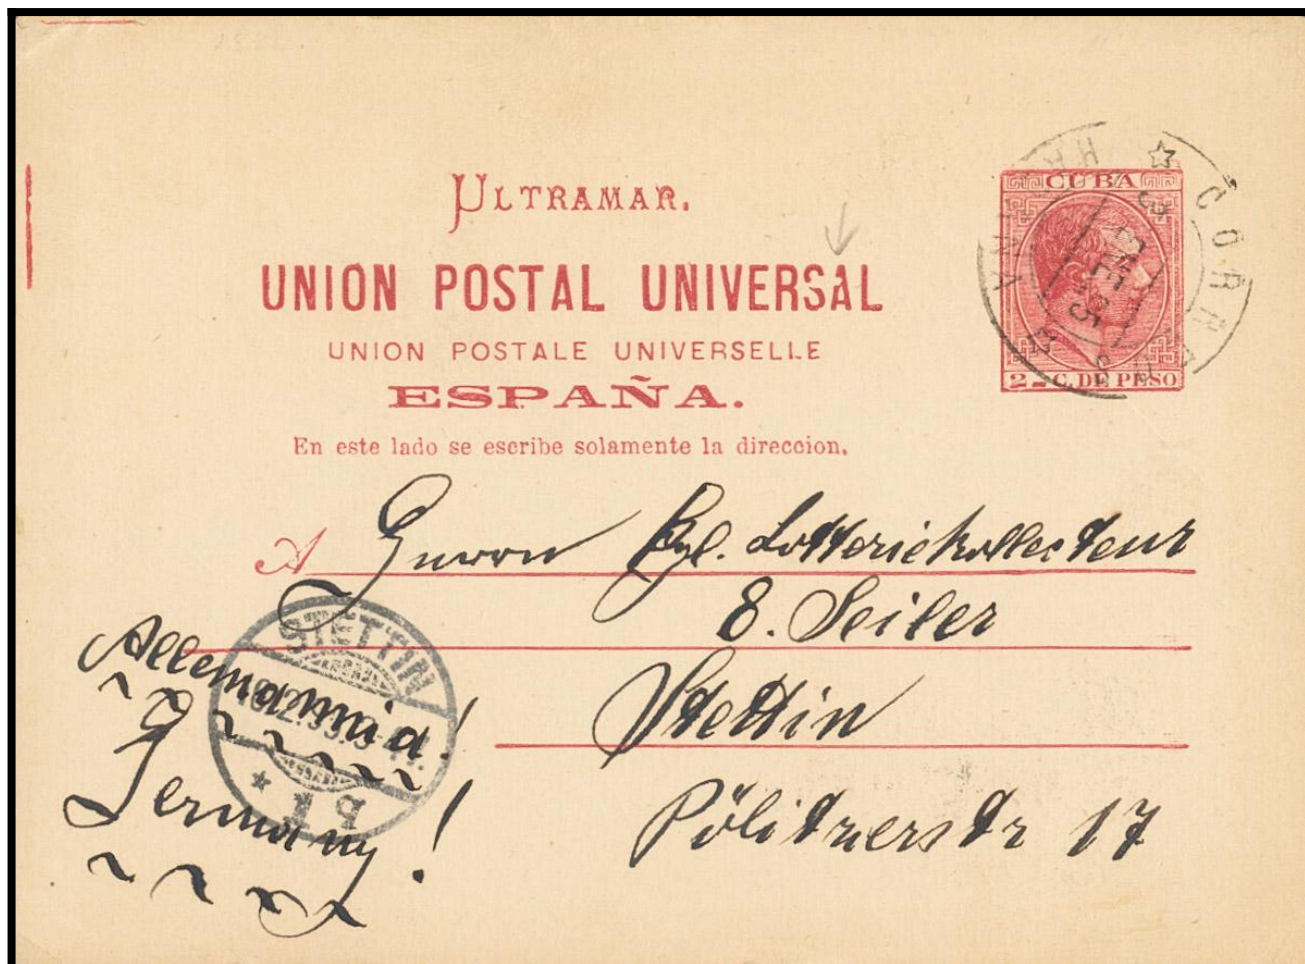 ULTRAMAR.
UNION POSTAL UNIVERSAL
UNION POSTALE UNIVERSELLE
ESPAÑA.
En este lado se escribe solamente la direccion.
CUBA
2 - C. DE PESO
CORREOS
HABANA
A Herrn Kgl. Lotteriekollecteur
E. Seiler
Stettin
Pölitzerstr 17
Allemannia!
Germany!
STETTIN